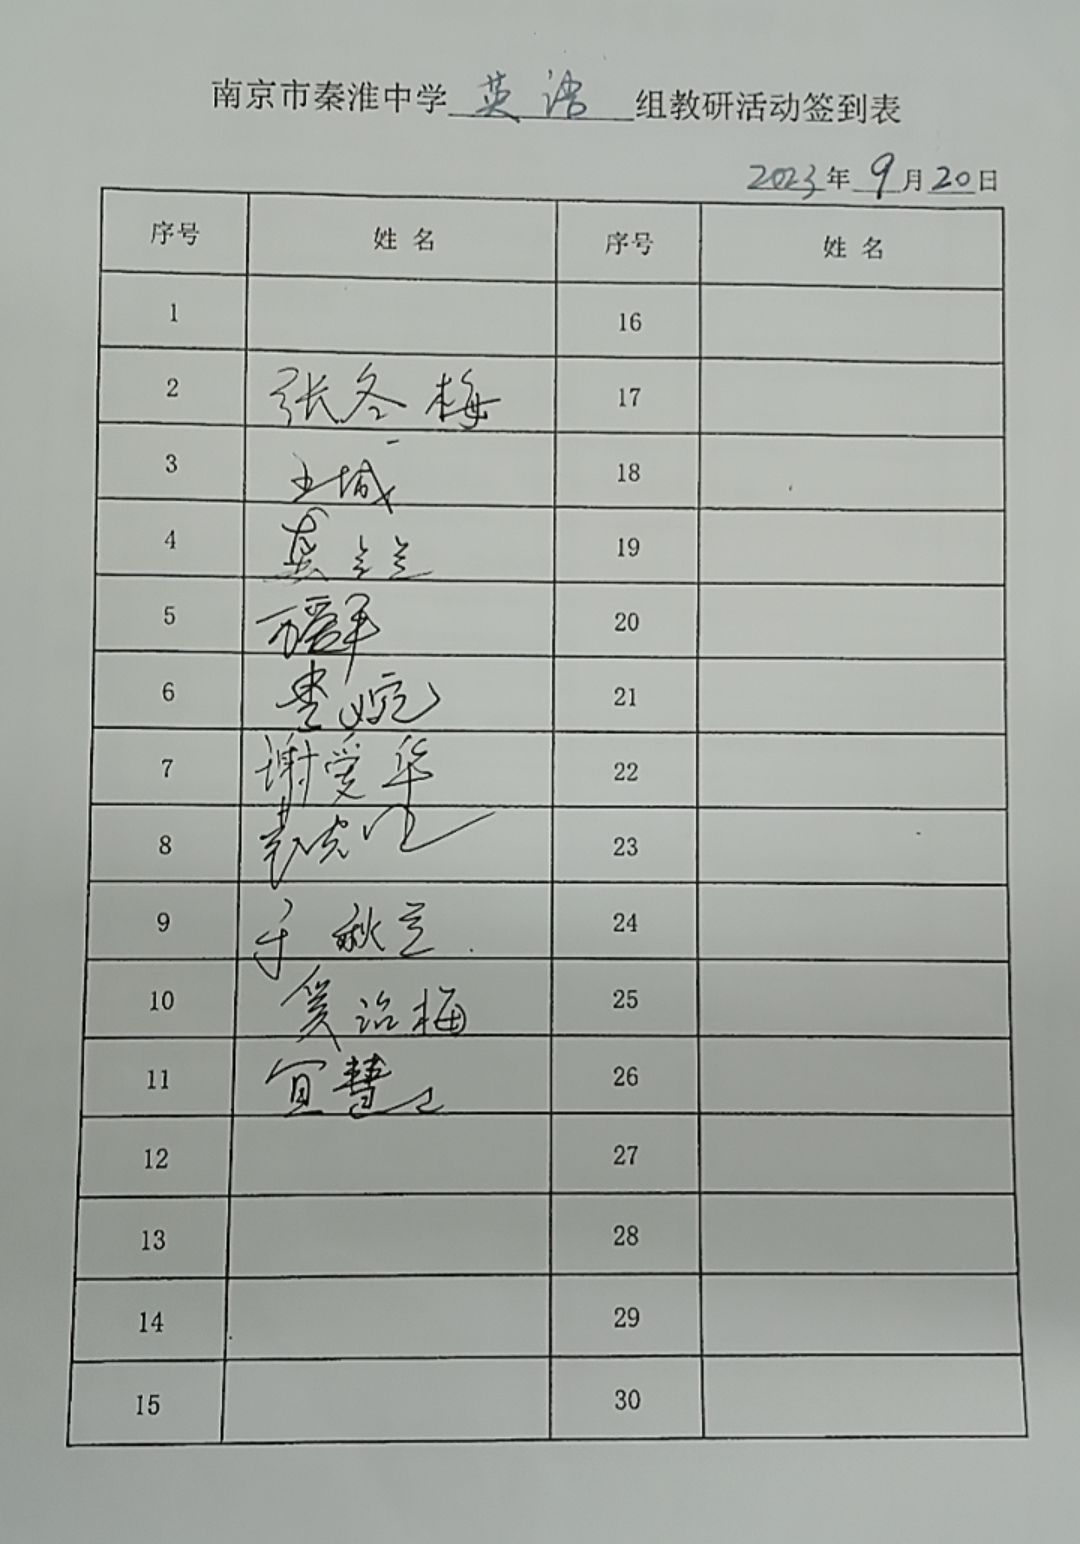 南京市秦淮中学 英语 组教研活动签到表
2023年 9月20日
序号 姓名 序号 姓名
1 16
2 张冬梅 17
3 王城 18
4 19
5 20
6 娄婉 21
7 谢爱华 22
8 23
9 于秋兰 24
10 奚治梅 25
11 宜慧 26
12 27
13 28
14 29
15 30